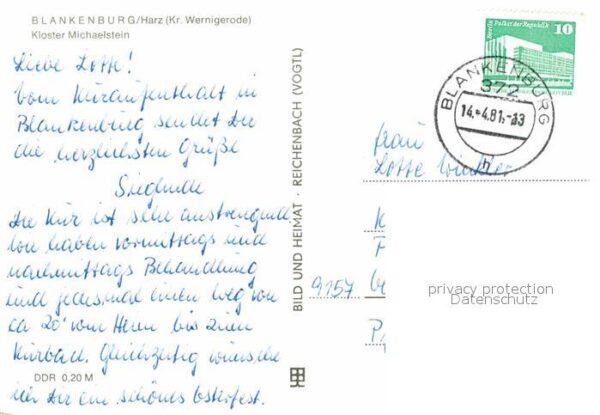 BLANKENBURG/Harz (Kr. Wernigerode)
Kloster Michaelstein
Liebe Lotte!
Vom Kuraufenthalt in
Blankenburg sendet Dir
die herzlichsten Grüße
Sieglinde
Die Kur ist sehr anstrengend
wir haben vormittags und
nachmittags Behandlung
und jedesmal einen Weg von
ca 20' vom Heim bis zum
Kurbad. Gleichzeitig wünsche
ich Dir ein schönes Osterfest.
DDR 0,20 M
BILD UND HEIMAT · REICHENBACH (VOGTL)
Berlin Palast der Republik
10
DDR
BLANKENBURG
372
14.-4.81.-13
h
Frau
Lotte Winkler
9157
privacy protection
Datenschutz